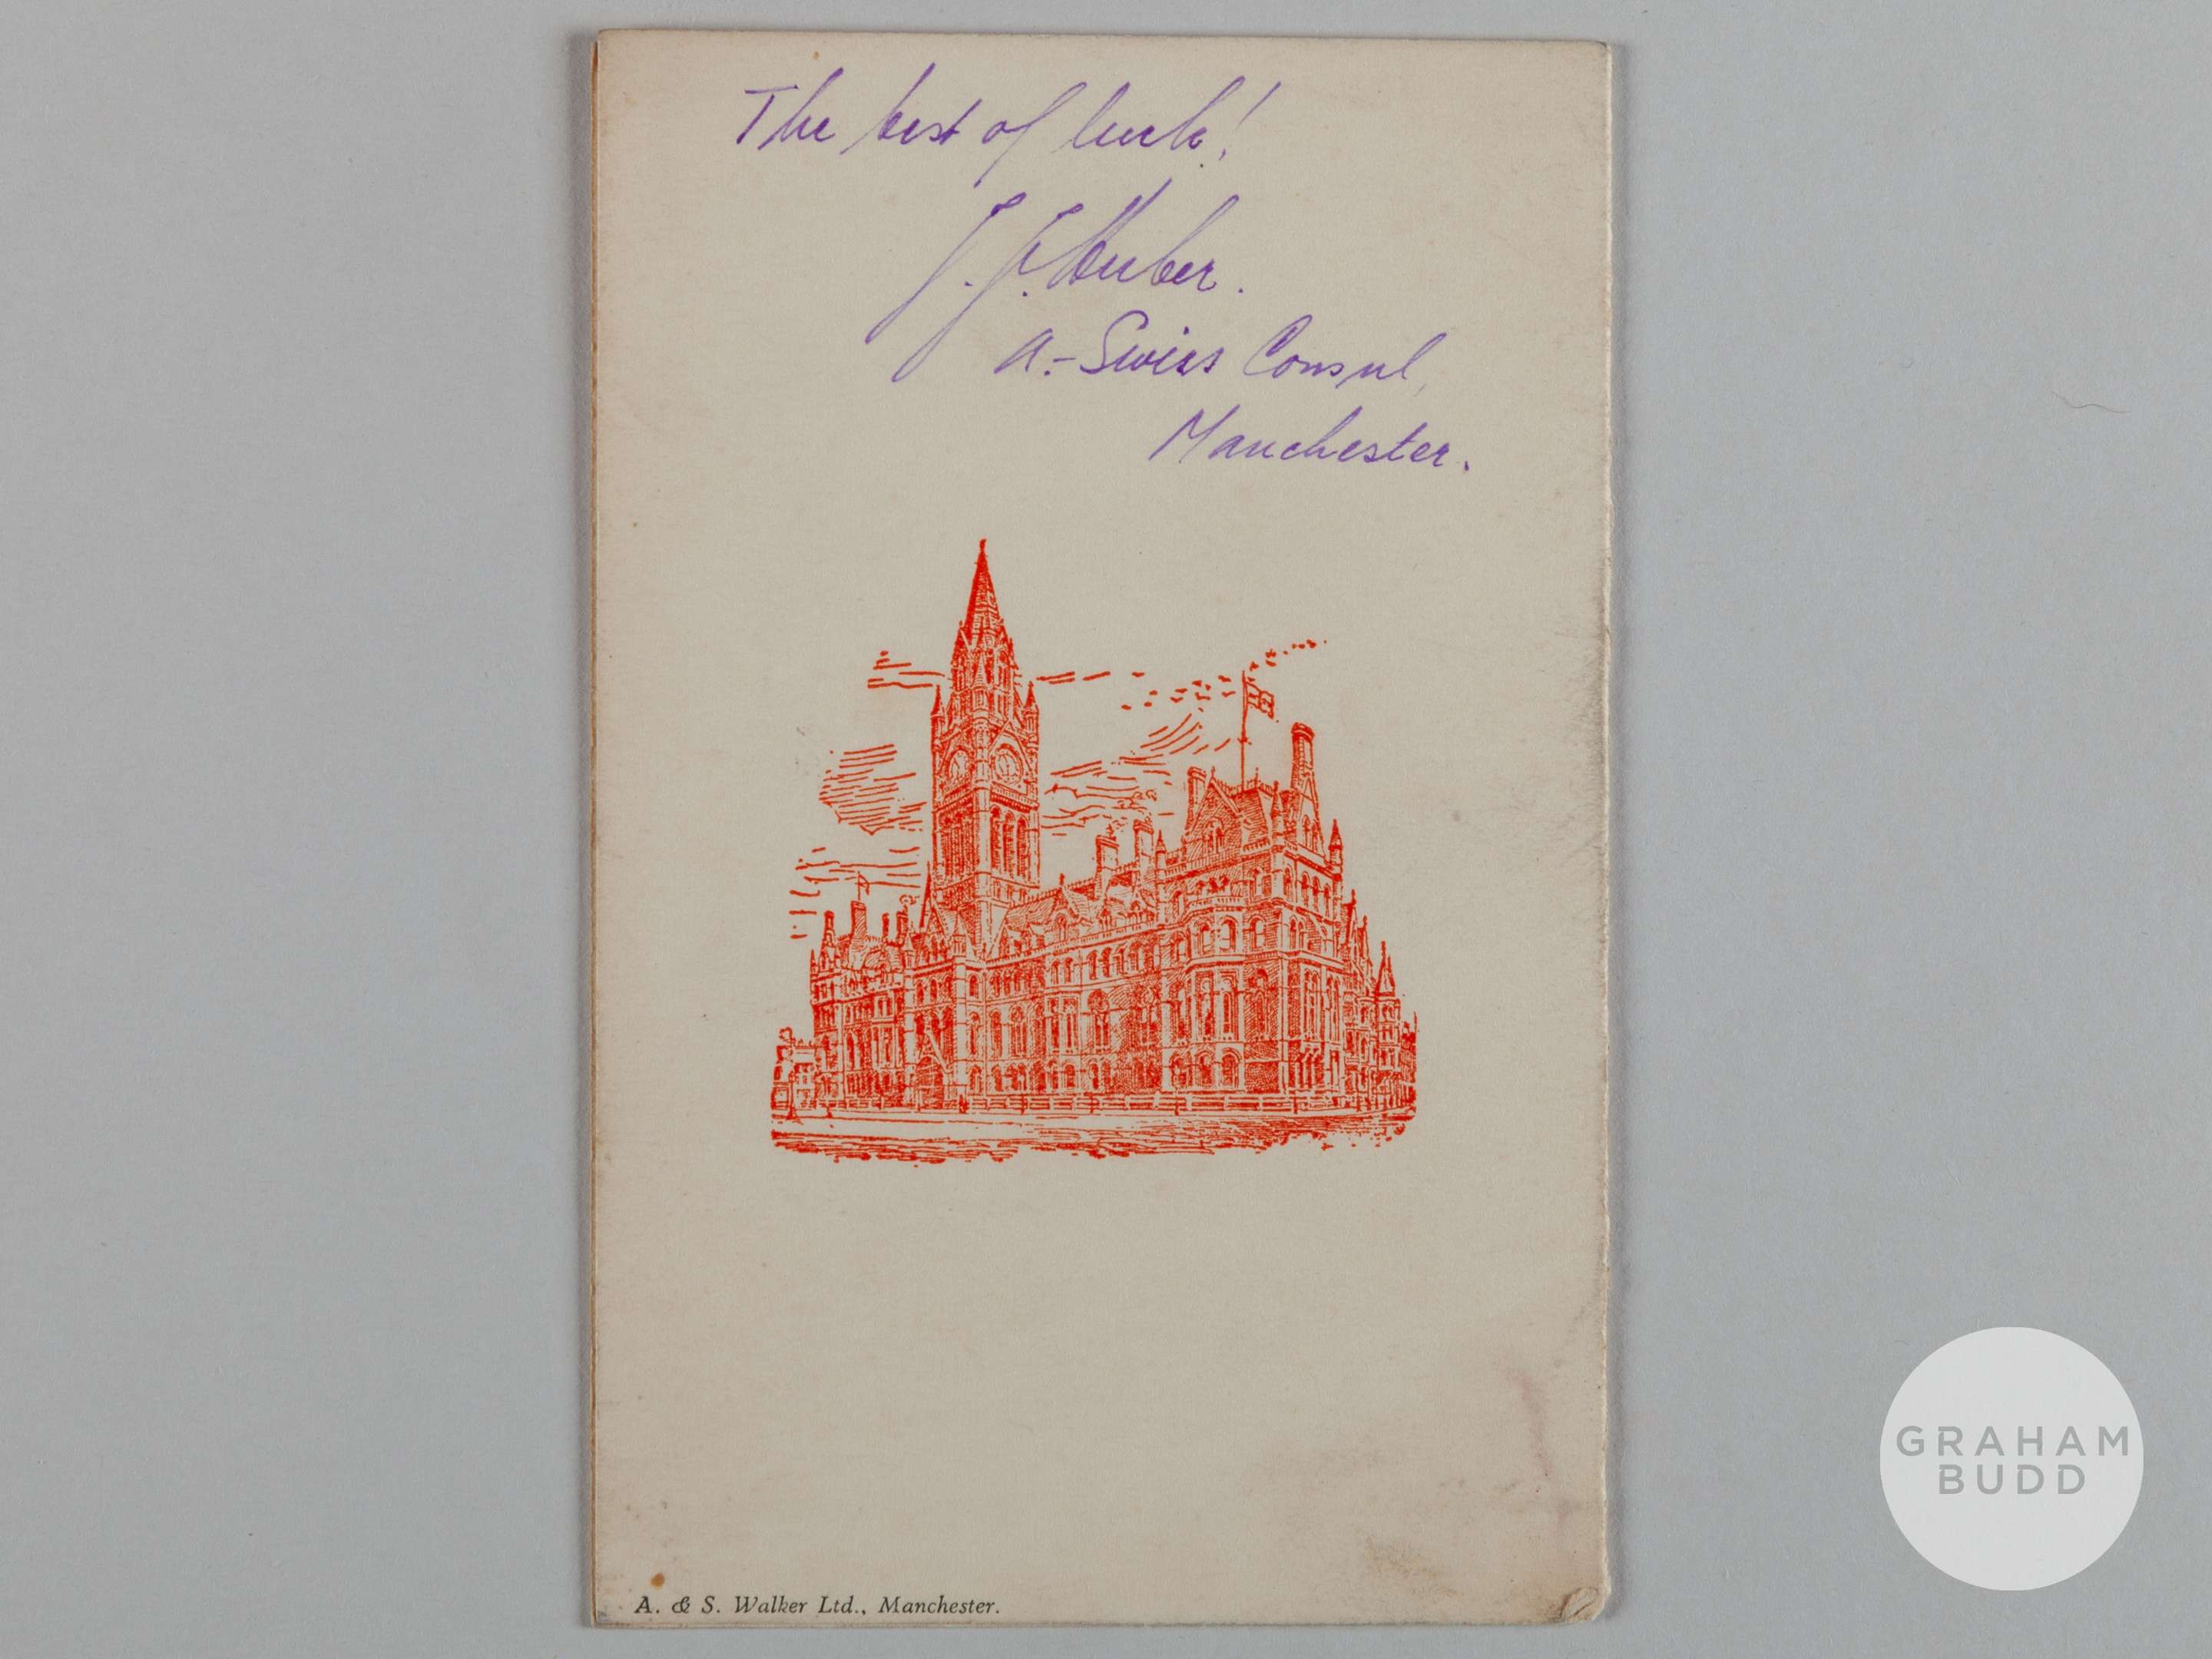 The best of luck!
J. J. Huber.
a.- Swiss Consul,
Manchester.
A. & S. Walker Ltd., Manchester.
GRAHAM
BUDD